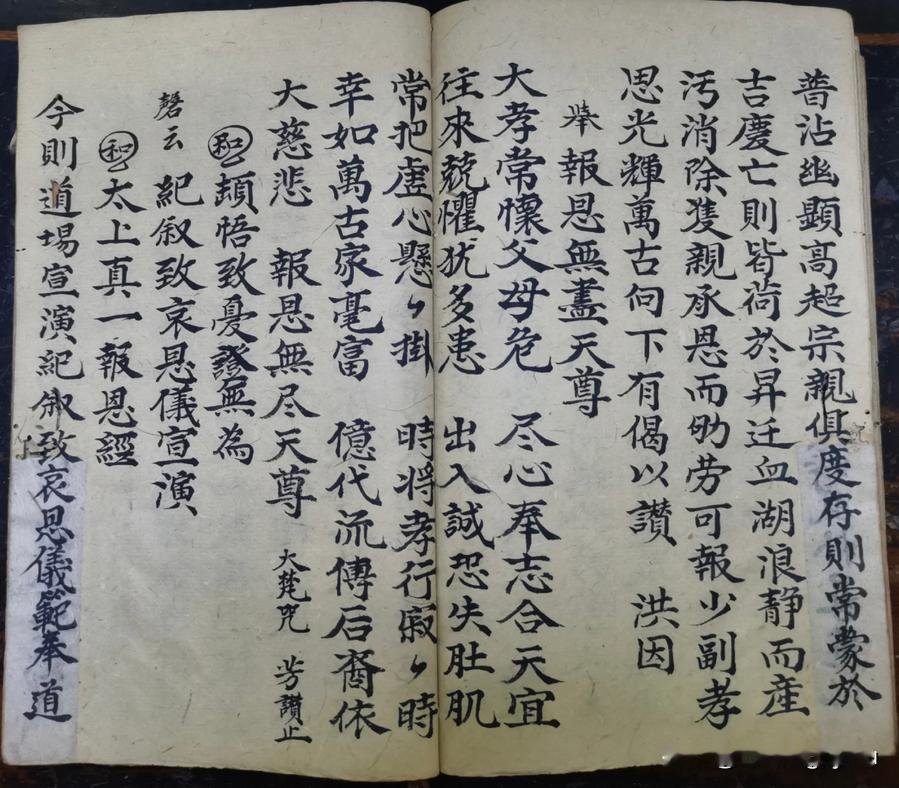 普沾幽顯高超宗親俱度存則常蒙於
吉慶亡則皆荷於昇迁血湖浪静而産
汚消除獲親承恩而劬劳可報少副孝
思光輝萬古向下有偈以讃　洪因
舉　報恩無盡天尊
大孝常懷父母危　尽心奉志合天宜
往來兢懼犹多患　出入誠恐失肚肌
常把虚心懸〻掛　時将孝行寂〻時
幸如萬古家毫富　億代流傳后裔依
大慈悲　報恩無尽天尊　大梵咒　芳讃止
和　頓悟致憂證無為
磬云　紀叙致哀恩儀宣演
和　太上真一報恩經
今則道場宣演紀叙致哀恩儀範奉道